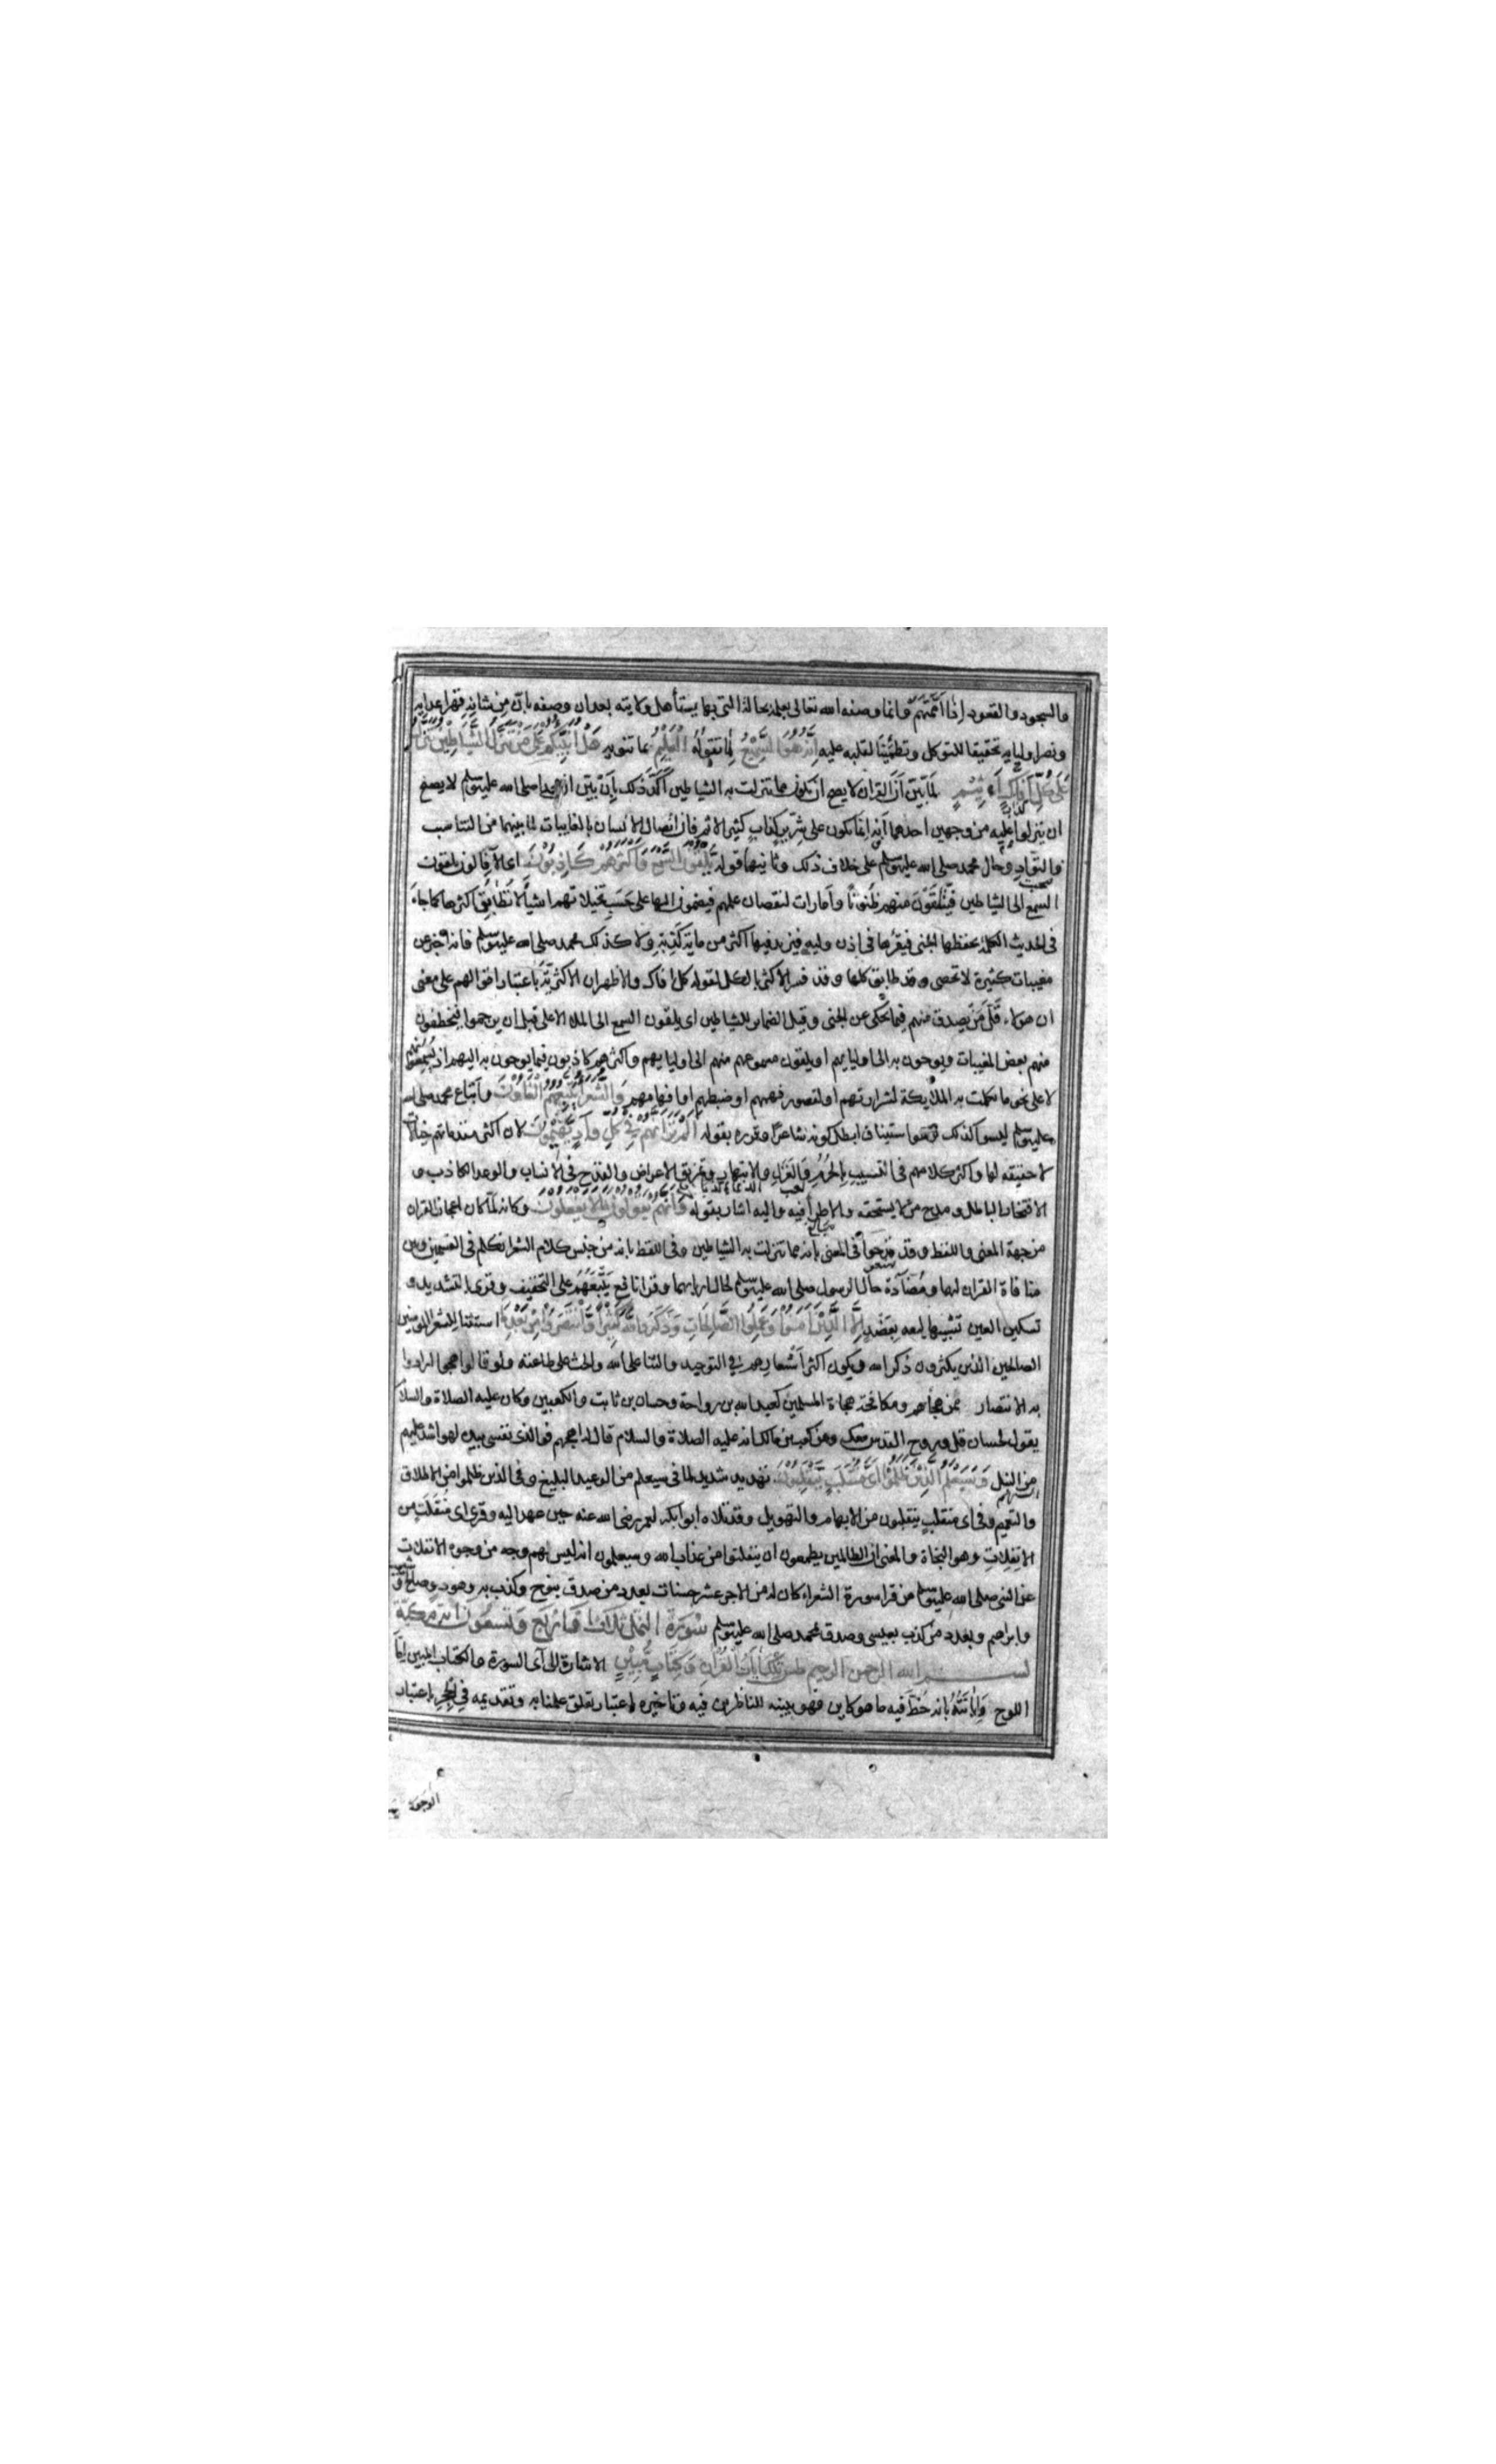 والسجود والقعود اذا اممتهم وانما وصفه الله تعالى بعلمه بحاله التي بها يستأهل ولايته بعد ان وصفه بان من شانه قهر اعدائه
ونصر اوليايه تحقيقا للتوكل وتطمينا لقلبه عليه انه هو السميع لما تقوله العليم بما تنويه هل انبئكم على من تنزل الشياطين تنزل
على كل افاك اثيم لما بين ان القران لا يصح ان يكون مما تنزلت به الشياطين اكد ذلك بان بين ان محمدا صلى الله عليه وسلم لا يصلح
ان يتنزلوا عليه من وجهين احدهما انه انما يكون على شرير كذاب كثير الاثم فان اتصال الانسان بالغايبات لما بينهما من التناسب
والتواد وحال محمد صلى الله عليه وسلم على خلاف ذلك وثانيهما قوله يلقون السمع واكثرهم كاذبون اي الافاكون يلقون
السمع الى الشياطين فيتلقون منهم ظنونا وامارات لنقصان علمهم فيضمون اليها على حسب تخيلاتهم اشيا لا تطابق اكثرها كما جاء
في الحديث الكلمة يحفظها الجني فيقرها في اذن وليه فيزيد فيها اكثر من ماية كذبة ولا كذلك محمد صلى الله عليه وسلم فانه اخبر عن
مغيبات كثيرة لا تحصى وقد طابق كلها وقد فسر الاكثر بالكل لقوله كل افاك والاظهر ان الاكثرية باعتبار اقوالهم على معنى
ان هولاء قل من يصدق منهم فيما يحكي عن الجني وقيل الضماير للشياطين اي يلقون السمع الى الملا الاعلى قبل ان يرجموا فيخطفون
منهم بعض المغيبات ويوحون به الى اوليايهم او يلقون مسموعهم منهم الى اوليايهم واكثرهم كاذبون فيما يوحون به اليهم اذ يسمعونهم
لا على نحو ما تكلمت به الملايكة لشرارتهم او لقصور فهمهم او ضبطهم او افهامهم والشعراء يتبعهم الغاوون واتباع محمد صلى الله
عليه وسلم ليسوا كذلك وهو استيناف ابطل كونه شاعرا وقرره بقوله الم تر انهم في كل واد يهيمون لان اكثر مقدماتهم خيالات
لا حقيقه لها واكثر كلامهم في النسيب بالحرم والغزل والابتهار وتمزيق الاعراض والقدح في الانساب والوعد الكاذب و
الافتخار الباطل ومدح من لا يستحقه والاطرا فيه واليه اشار بقوله وانهم يقولون ما لا يفعلون وكانه لما كان اعجاز القران
من جهة المعنى واللفظ وقد قدحوا في المعنى بانه مما تنزلت به الشياطين وفي اللفظ بانه من جنس كلام الشعرا تكلم في القسمين وبين
منافاة القران لهما ومضادة حال الرسول صلى الله عليه وسلم لحال اربابهما وقرا نافع يتبعهم على التخفيف وقري بالتشديد و
تسكين العين تشبيها لبعه بعضد الا الذين امنوا وعملوا الصالحات وذكروا الله كثيرا وانتصروا من بعد استثنا للشعرا المومنين
الصالحين الذين يكثرون ذكر الله ويكون اكثر اشعارهم في التوحيد والثنا على الله والحث على طاعته ولو قالوا هجوا ارادوا
به الانتصار ممن هجاهم ومكافحة هجاة المسلمين كعبد الله بن رواحة وحسان بن ثابت والكعبين وكان عليه الصلاة والسلام
يقول لحسان قل وروح القدس معك وعن كعب بن مالك انه عليه الصلاة والسلام قال له اهجهم فوالذي نفسي بيده لهو اشد عليهم
من النبل وسيعلم الذين ظلموا اي منقلب ينقلبون تهديد شديد لما في سيعلم من الوعيد البليغ وفي الذين ظلموا من الاطلاق
والتعميم وفي اي منقلب ينقلبون من الابهام والتهويل وقد تلاه ابوا بكر لعمر رضي الله عنه حين عهد اليه وقري اي منفلت من
الانفلات وهو النجاة والمعنى ان الظالمين يطمعون ان ينفلتوا من عذاب الله وسيعلمون انه ليس لهم وجه من وجوه الانفلات
عن النبي صلى الله عليه وسلم من قرا سورة الشعراء كان له من الاجر عشر حسنات بعدد من صدق بنوح وكذب به وهود وصالح وشعيب
وابراهيم وبعدد من كذب بعيسى وصدق بمحمد صلى الله عليه وسلم سورة النمل ثلاث او اربع وتسعون اية مكية
بسم الله الرحمن الرحيم طس تلك ايات القران وكتاب مبين الاشارة الى آي السورة والكتاب المبين اما
اللوح وابانته بانه خط فيه ما هو كاين فهو يبينه للناظرين فيه وتاخيره باعتبار تعلق علمنا به وتقديمه في الحجر باعتبار